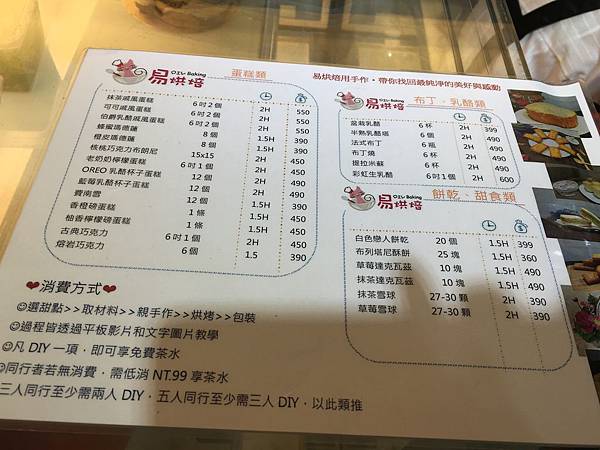 易烘焙用手作・帶你找回最純淨的美好與感動
易烘焙 Baking 蛋糕類
抹茶戚風蛋糕 6吋2個 2H 550
可可戚風蛋糕 6吋2個 2H 550
伯爵乳酪戚風蛋糕 6吋2個 2H 550
蜂蜜瑪德蓮 8個 1.5H 450
橙皮瑪德蓮 8個 1.5H 390
核桃巧克力布朗尼 15x15 2H 450
老奶奶檸檬蛋糕 6吋1個 2H 450
OREO 乳酪杯子蛋糕 12個 2H 490
藍莓乳酪杯子蛋糕 12個 2H 490
費南雪 12個 2H 450
香橙磅蛋糕 1條 1.5H 390
柚香檸檬磅蛋糕 1條 1.5H 450
古典巧克力 6吋1個 2H 450
熔岩巧克力 6個 1.5 390
易烘焙 Baking 布丁、乳酪類
盆栽乳酪 6杯 2H 399
半熟乳酪塔 6個 2H 490
法式布丁 6瓶 2H 490
布丁燒 6杯 2H 490
提拉米蘇 6杯 2H 490
彩虹生乳酪 6吋1個 2H 600
易烘焙 Baking 餅乾、甜食類
白色戀人餅乾 20個 1.5H 399
布列塔尼酥餅 25塊 1.5H 360
草莓達克瓦茲 10塊 1.5H 490
抹茶達克瓦茲 10塊 1.5H 490
抹茶雪球 27-30顆 2H 390
草莓雪球 27-30顆 2H 390
❤消費方式❤
☺選甜點>>取材料>>親手作>>烘烤>>包裝
☺過程皆透過平板影片和文字圖片教學
☺凡 DIY 一項，即可享免費茶水
☺同行者若無消費，需低消 NT.99 享茶水
三人同行至少需兩人 DIY，五人同行至少需三人 DIY，以此類推